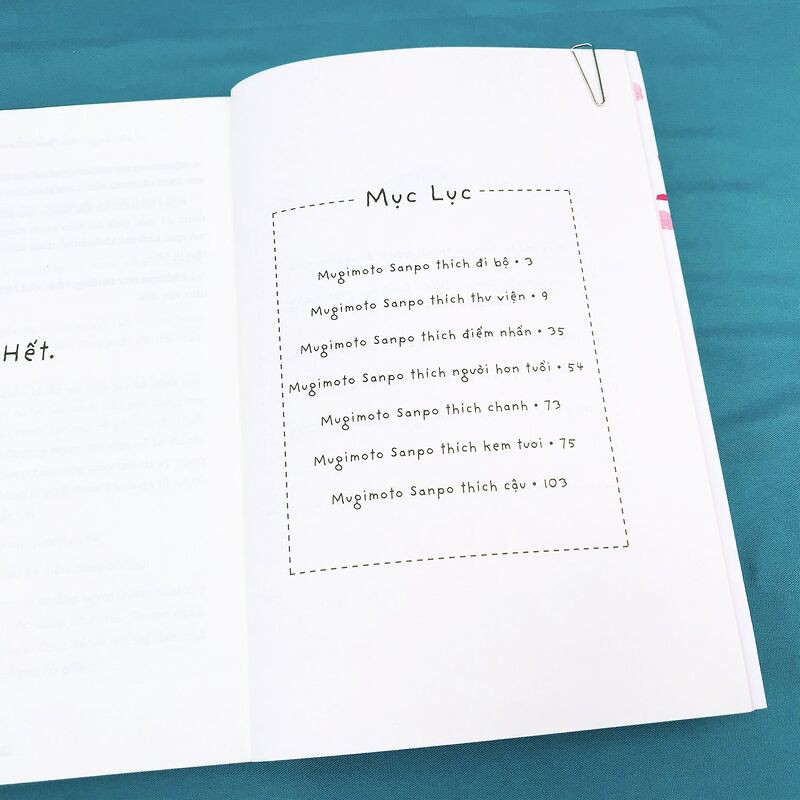 Hết.
Mục Lục
Mugimoto Sanpo thích đi bộ • 3
Mugimoto Sanpo thích thư viện • 9
Mugimoto Sanpo thích điểm nhấn • 35
Mugimoto Sanpo thích người hơn tuổi • 54
Mugimoto Sanpo thích chanh • 73
Mugimoto Sanpo thích kem tươi • 75
Mugimoto Sanpo thích cậu • 103